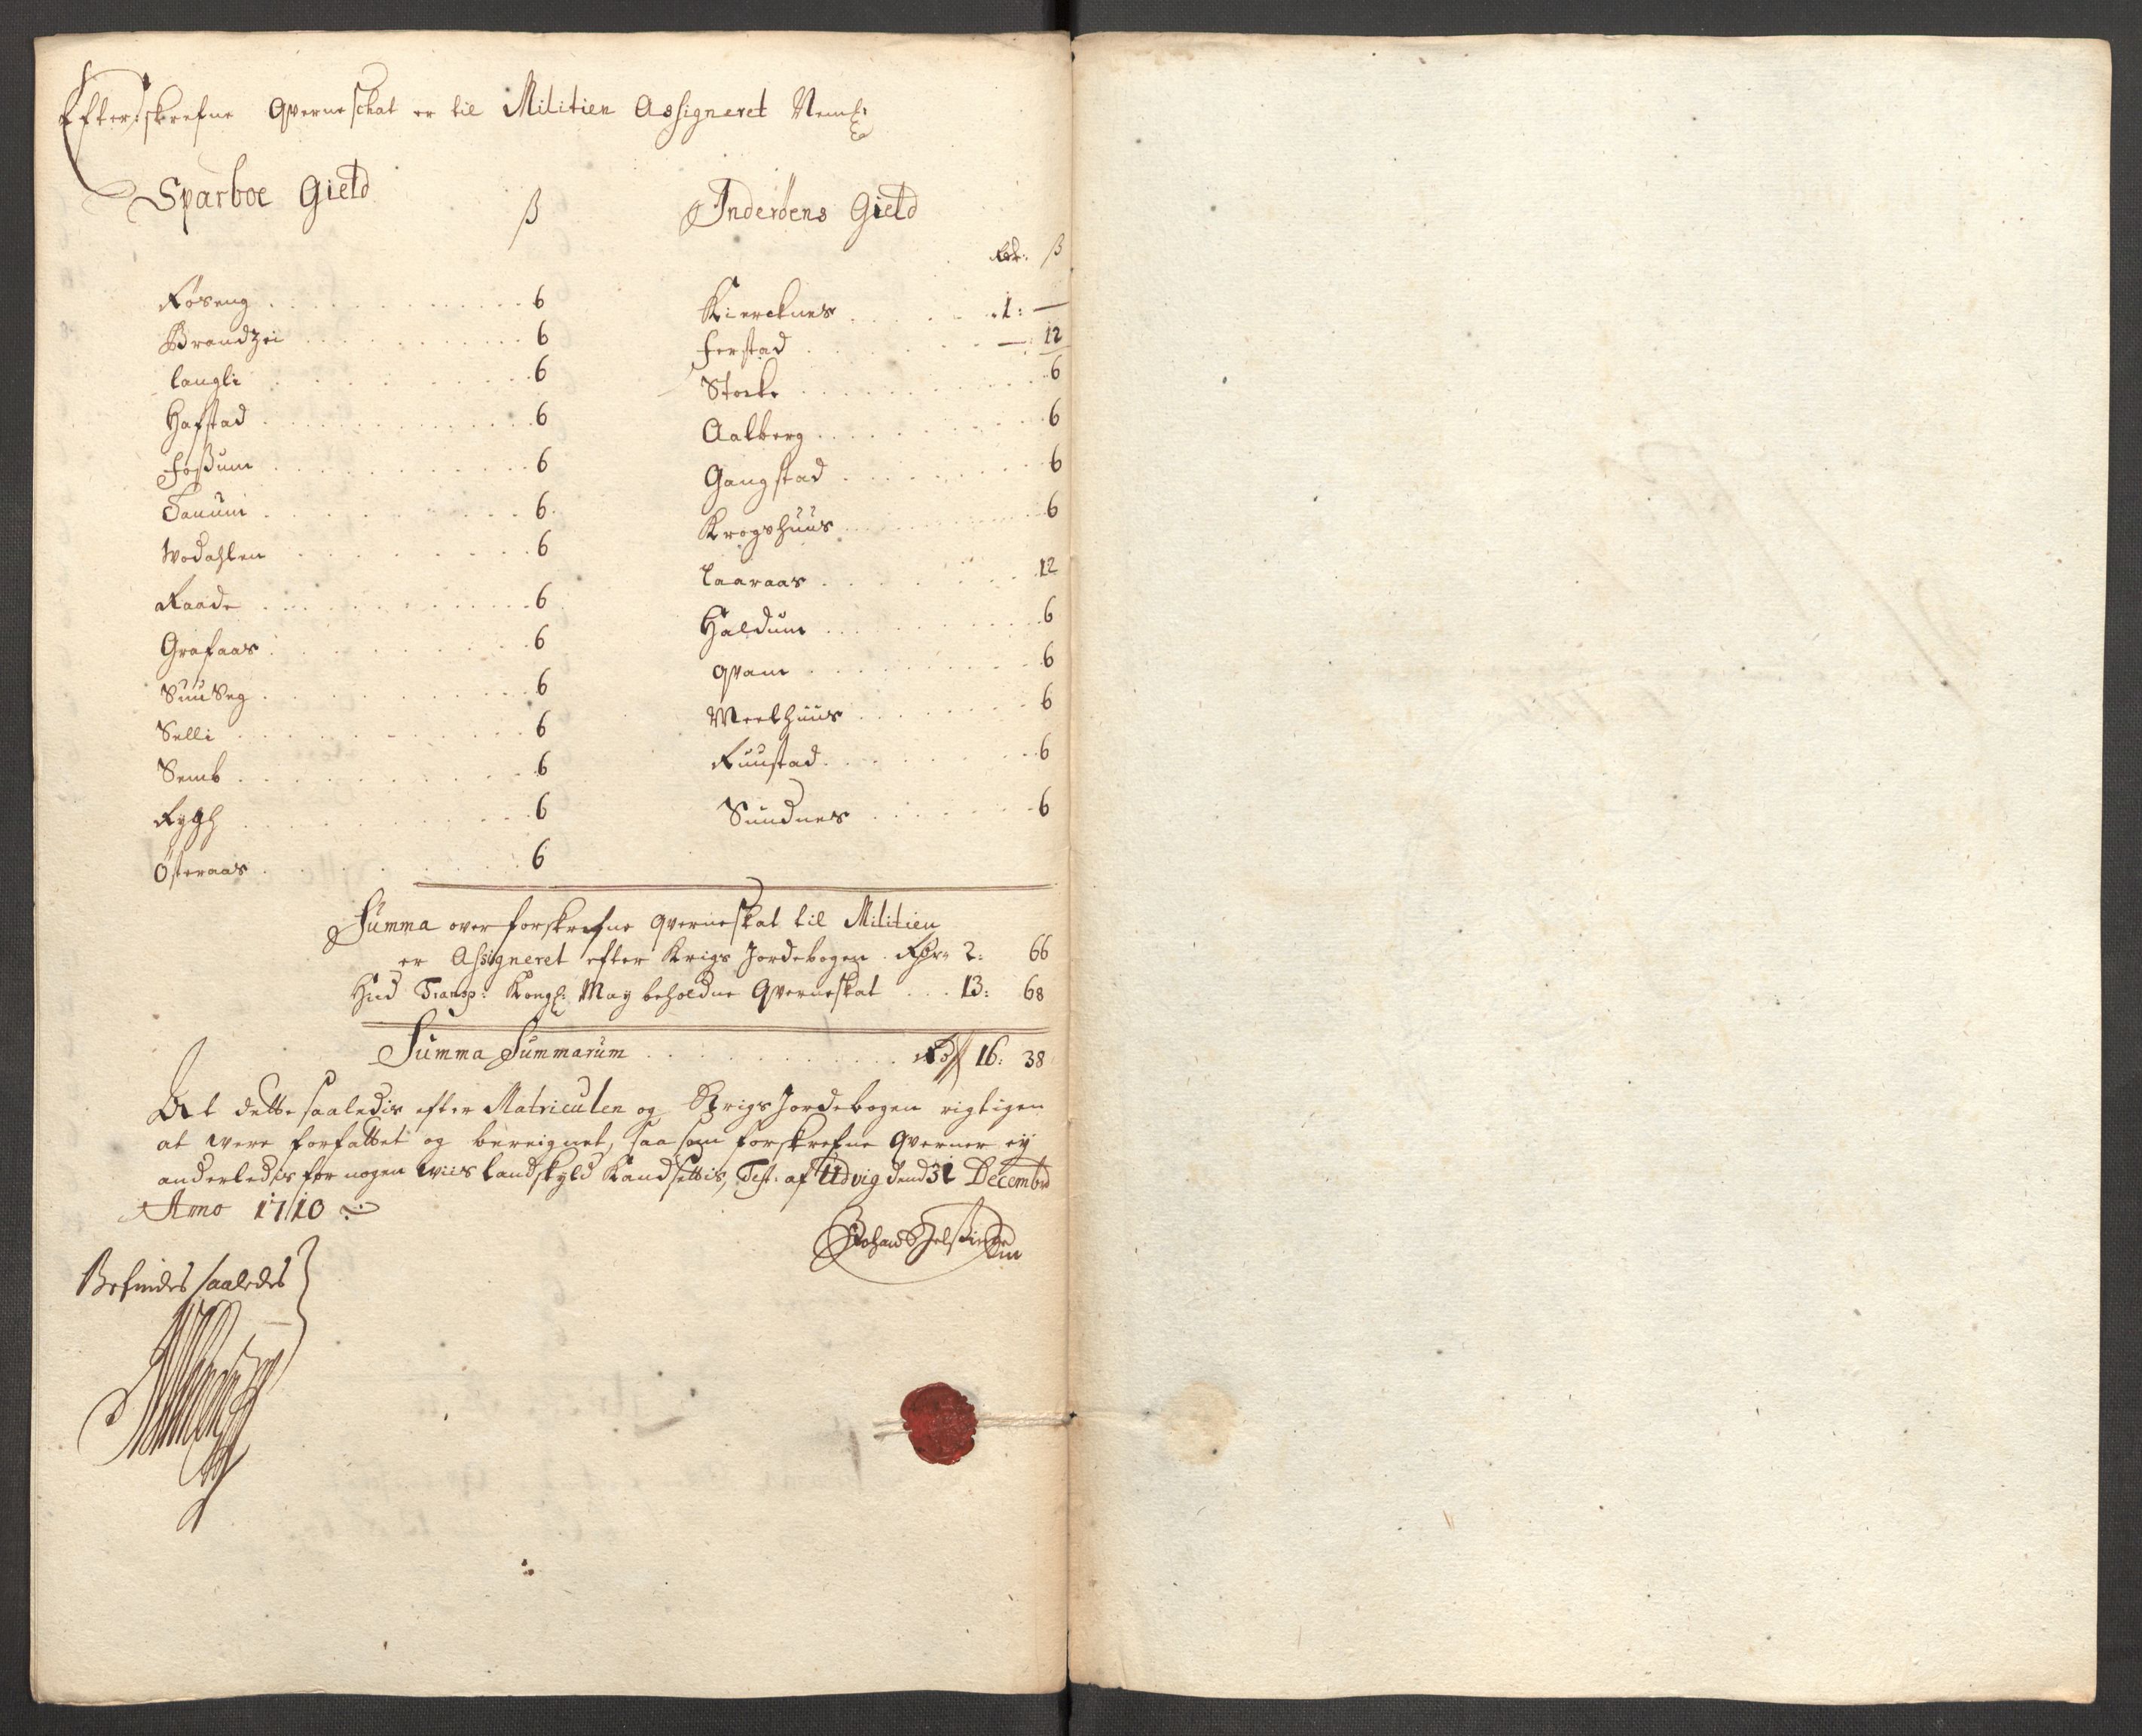 Efterskrefne Qverneschat er til Militien Assigneret Neml:
Sparboe Gield
ß
Røseng 6
Brandzei 6
langli 6
Hafstad 6
foßum 6
Tanum 6
Wodahlen 6
Raade 6
Grafaas 6
Selli 6
Semb 6
Rygh 6
Østeraas 6
Inderöens Gield
Rdr: ß
Kiercknes 1: —
ferstad — 12
Storke 6
Aalberg 6
Gangstad 6
Krogshuus 6
laaraas 12
Haldum 6
Qvam 6
Meelhuus 6
Ruustad 6
Sundnes 6
Summa over forskrefne Qverneskat til Militien
er Assigneret efter Krigs Jordebogen Rdr 2: 66
Hid Transp: Kongl: May beholdne Qverneskat 13: 68
Summa Summarum Rdr 16: 38
At dette saaledis efter Matriculen og Krigs Jordebogen rigtigen
at were forfattet og bereignet, saa som forskrefne Qverner ej
anderledis for nogen wiis landskyld Kand settis, Test. af Udvig dend 31 Decembr
Anno 1710
Befindes saaledes